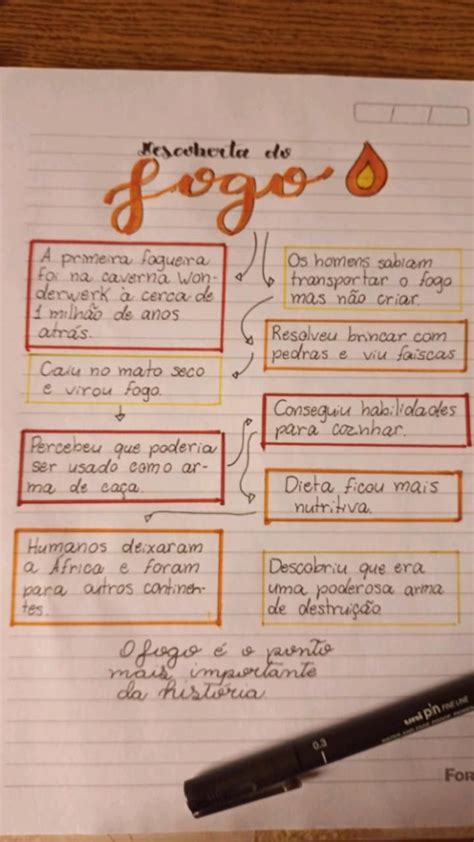 Descoberta do
fogo
A primeira fogueira
foi na caverna Won-
derwerk à cerca de
1 milhão de anos
atrás.
Os homens sabiam
transportar o fogo
mas não criar.
Resolveu brincar com
pedras e viu faíscas
Caiu no mato seco
e virou fogo.
Percebeu que poderia
ser usado como ar-
ma de caça.
Conseguiu habilidades
para cozinhar.
Dieta ficou mais
nutritiva.
Humanos deixaram
a África e foram
para outros continen-
tes.
Descobriu que era
uma poderosa arma
de destruição
O fogo é o ponto
mais importante
da história
uni pin FINE LINE
0.3
FOR